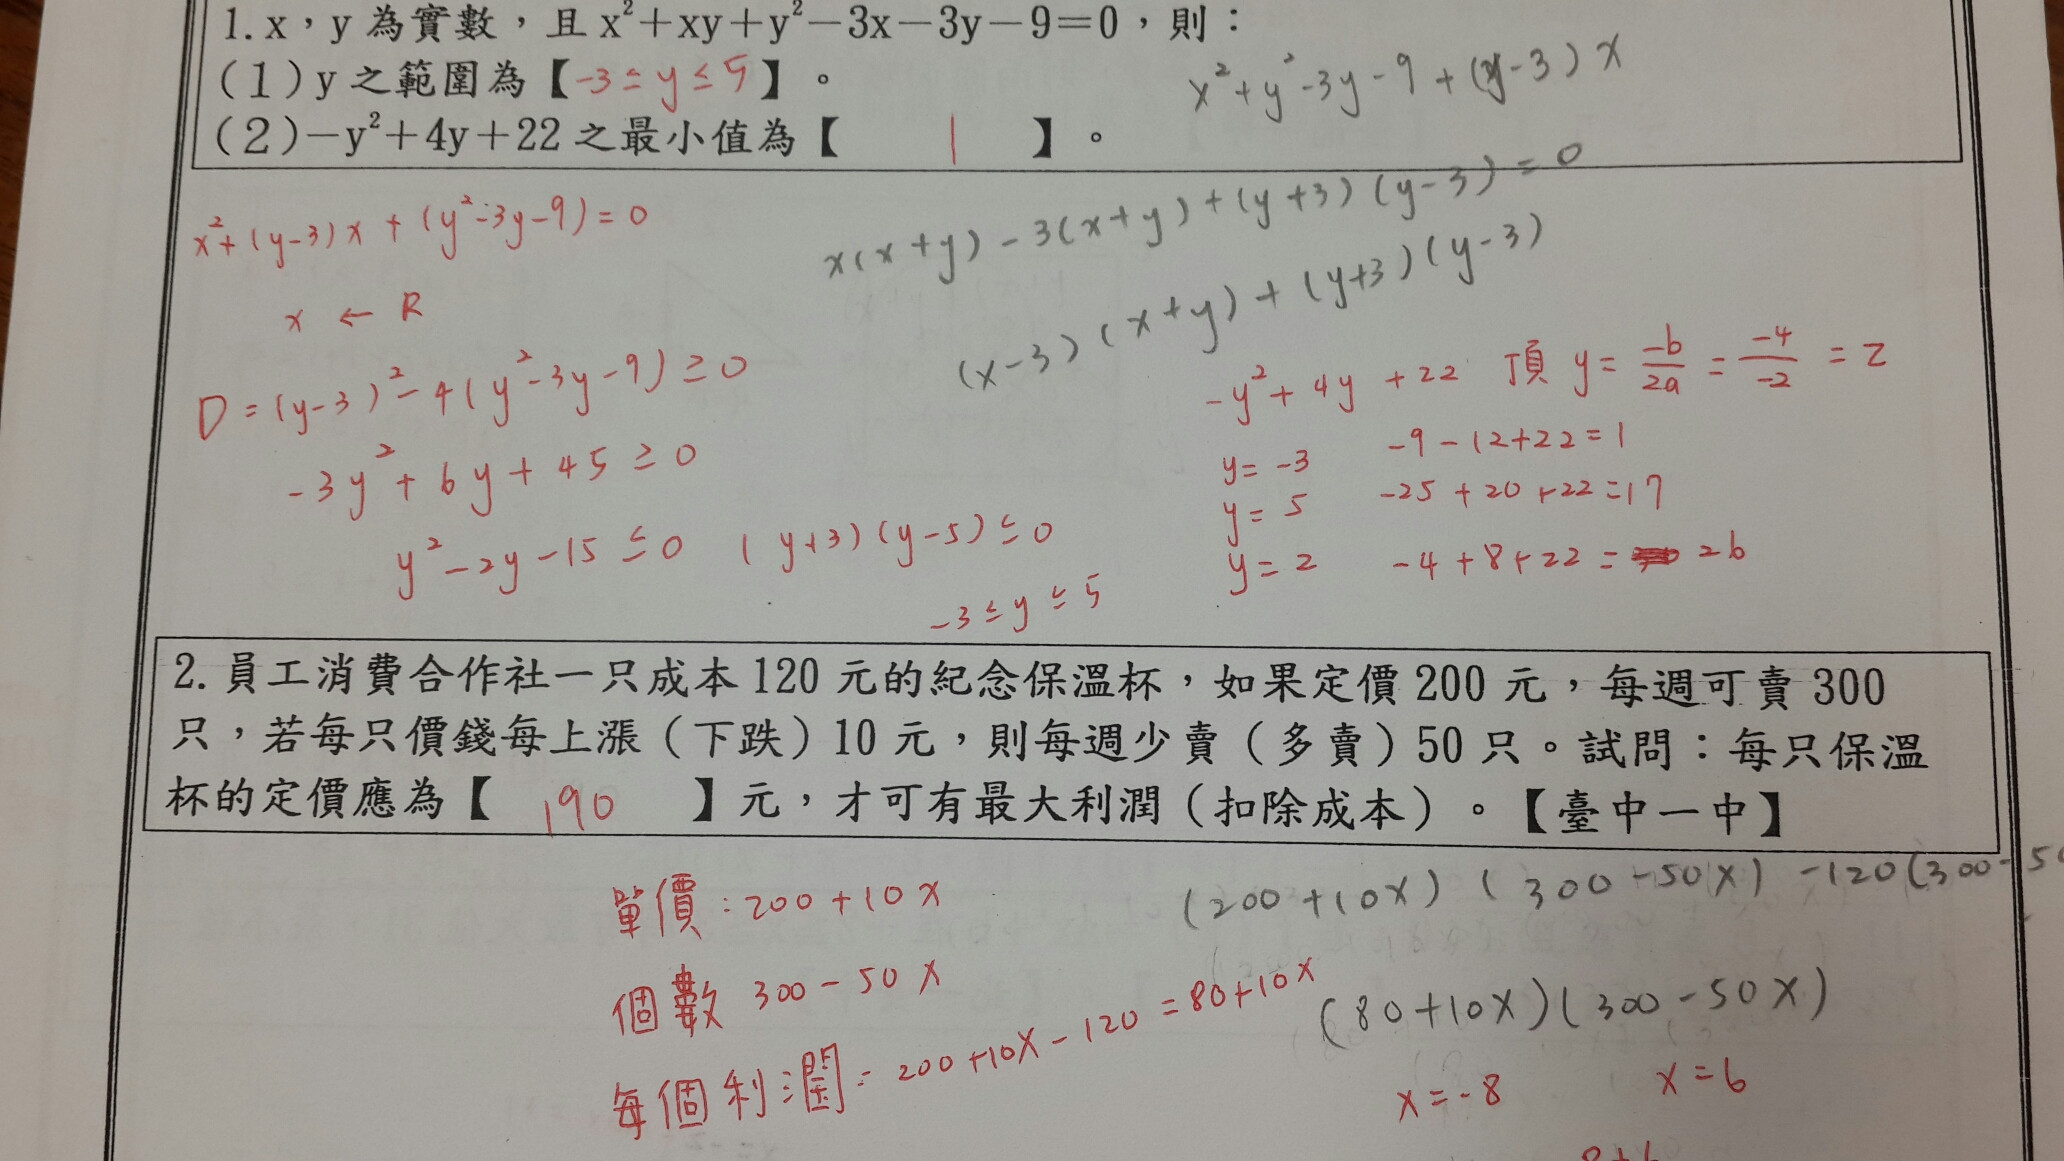 1. x，y 為實數，且 x²＋xy＋y²－3x－3y－9＝0，則：
(1) y 之範圍為【-3 ≤ y ≤ 5】。
(2)－y²＋4y＋22 之最小值為【 1 】。
x² + y² - 3y - 9 + (y - 3) x
x² + (y-3) x + (y² - 3y - 9) = 0
x(x+y) - 3(x+y) + (y+3)(y-3) = 0
x ← R
(x-3)(x+y) + (y+3)(y-3)
D = (y-3)² - 4(y² - 3y - 9) ≥ 0
-3y² + 6y + 45 ≥ 0
y² - 2y - 15 ≤ 0 (y+3)(y-5) ≤ 0
-3 ≤ y ≤ 5
-y² + 4y + 22 頂 y = -b/2a = -4/-2 = 2
y = -3 -9 - 12 + 22 = 1
y = 5 -25 + 20 + 22 = 17
y = 2 -4 + 8 + 22 = 26
2. 員工消費合作社一只成本 120 元的紀念保溫杯，如果定價 200 元，每週可賣 300
只，若每只價錢每上漲（下跌）10 元，則每週少賣（多賣）50 只。試問：每只保溫
杯的定價應為【 190 】元，才可有最大利潤（扣除成本）。【臺中一中】
單價：200 + 10x
(200 + 10x) (300 - 50x) - 120(300 - 50
個數 300 - 50x
每個利潤 = 200 + 10x - 120 = 80 + 10x
(80 + 10x)(300 - 50x)
x = -8 x = 6